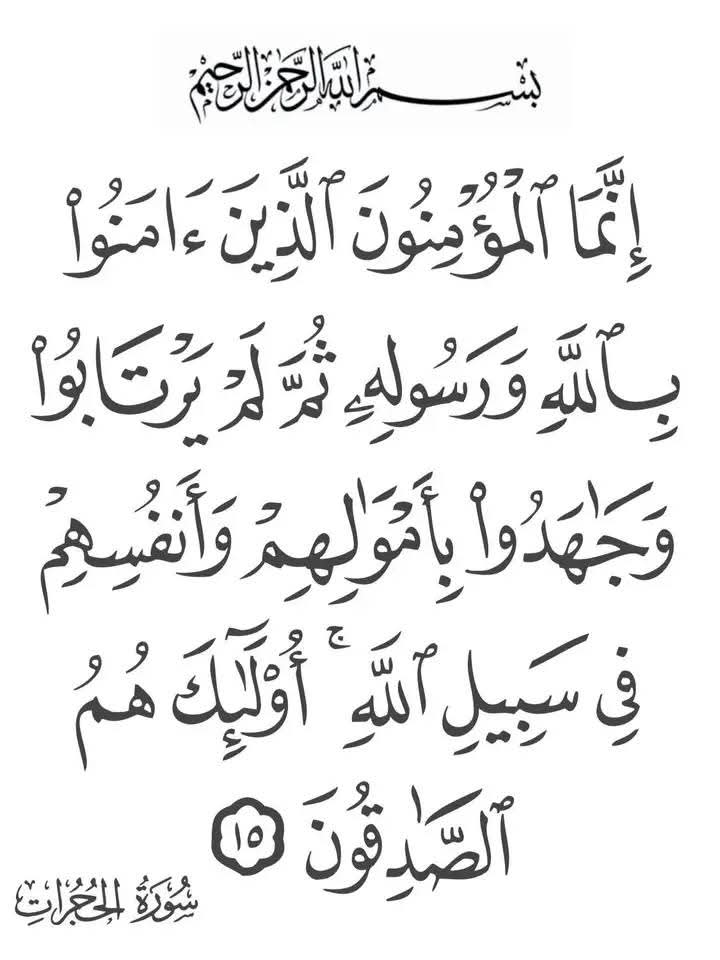 بسم الله الرحمن الرحيم
إِنَّمَا ٱلْمُؤْمِنُونَ ٱلَّذِينَ ءَامَنُوا۟
بِٱللَّهِ وَرَسُولِهِۦ ثُمَّ لَمْ يَرْتَابُوا۟
وَجَٰهَدُوا۟ بِأَمْوَٰلِهِمْ وَأَنفُسِهِمْ
فِى سَبِيلِ ٱللَّهِ ۚ أُو۟لَٰٓئِكَ هُمُ
ٱلصَّٰدِقُونَ ١٥
سُورَةُ الحُجُرَاتِ